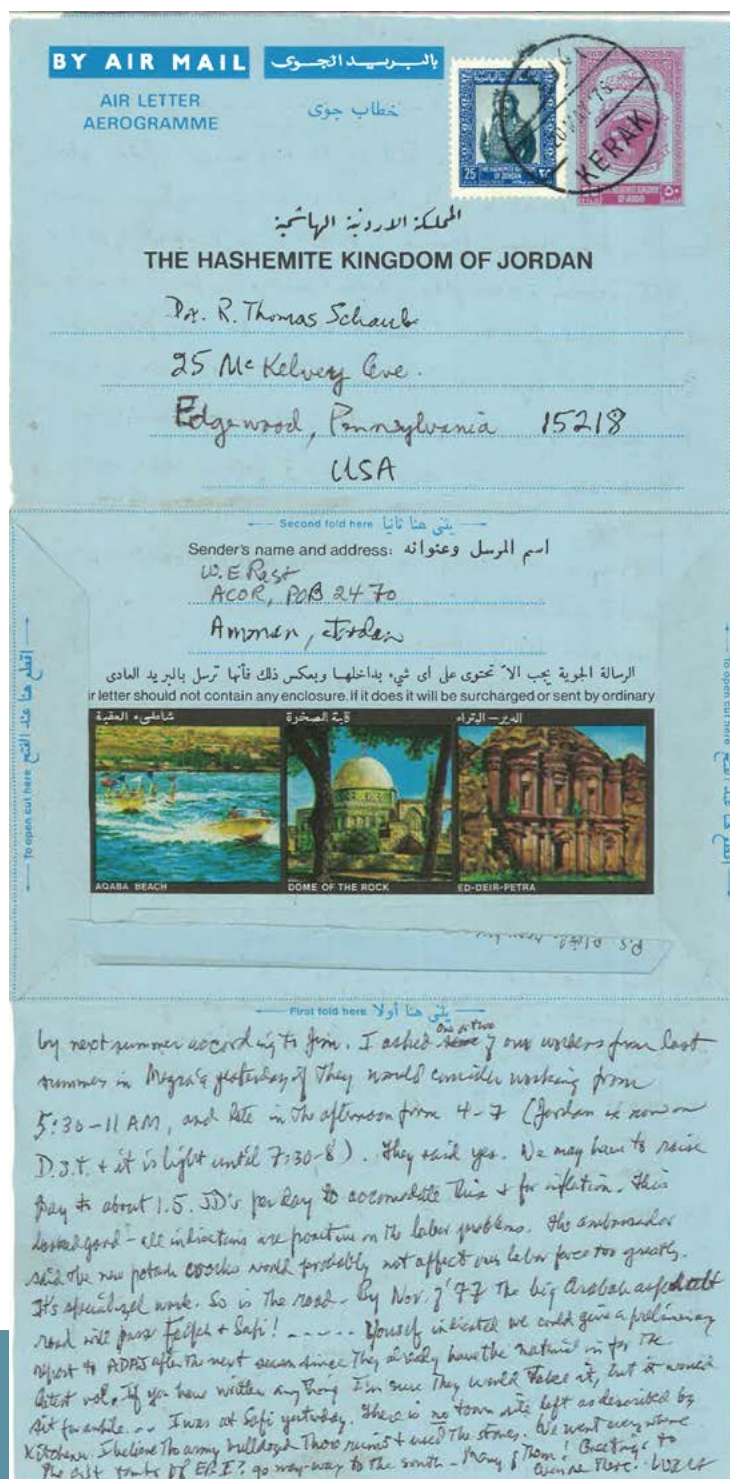 BY AIR MAIL بالبريد الجوى
AIR LETTER
AEROGRAMME
خطاب جوى
25 THE HASHEMITE KINGDOM OF JORDAN ٢٥
KERAK
٥٠
المملكة الاردنية الهاشمية
THE HASHEMITE KINGDOM OF JORDAN
Dr. R. Thomas Schaub
25 McKelvey Ave.
Edgewood, Pennsylvania 15218
USA
Second fold here يثنى هنا ثانيا
Sender's name and address: اسم المرسل وعنوانه
W.E. Rast
ACOR, POB 2470
Amman, Jordan
الرسالة الجوية يجب الا تحتوى على اى شيء بداخلها وبعكس ذلك فأنها ترسل بالبريد العادى
ir letter should not contain any enclosure. If it does it will be surcharged or sent by ordinary
شاطىء العقبة قبة الصخرة الدير - البتراء
AQABA BEACH DOME OF THE ROCK ED-DEIR-PETRA
To open cut here اقطع هنا عند الفتح
To open cut here
P.S.
First fold here يثنى هنا أولا
by next summer according to Jim. I asked one or two of our workers from last
summer in Mazra'a yesterday if they would consider working from
5:30-11 AM, and late in the afternoon from 4-7 (Jordan is now on
D.S.t. + it is light until 7:30-8). They said yes. We may have to raise
pay to about 1.5 JD's per day to accomodate this + for inflation. This
looked good - all indications are positive on the labor problems. The ambassador
said the new potash works would probably not affect our labor force too greatly.
It's specialized work. So is the road - By Nov. of '77 the big Arabah asphalt
road will pass Feifeh + Safi! ..... Yousef indicated we could give a preliminary
report to ADAJ after the next season since they already have the material in for the
latest vol. If you have written anything I'm sure they would take it, but it would
sit for awhile... I was at Safi yesterday. There is no town site left as described by
Kitchener. I believe the army bulldozed those ruins + used the stones. We went everywhere
The cist tombs of EB I? go way-way to the south - Many of them! Greetings to
everyone there! Walt